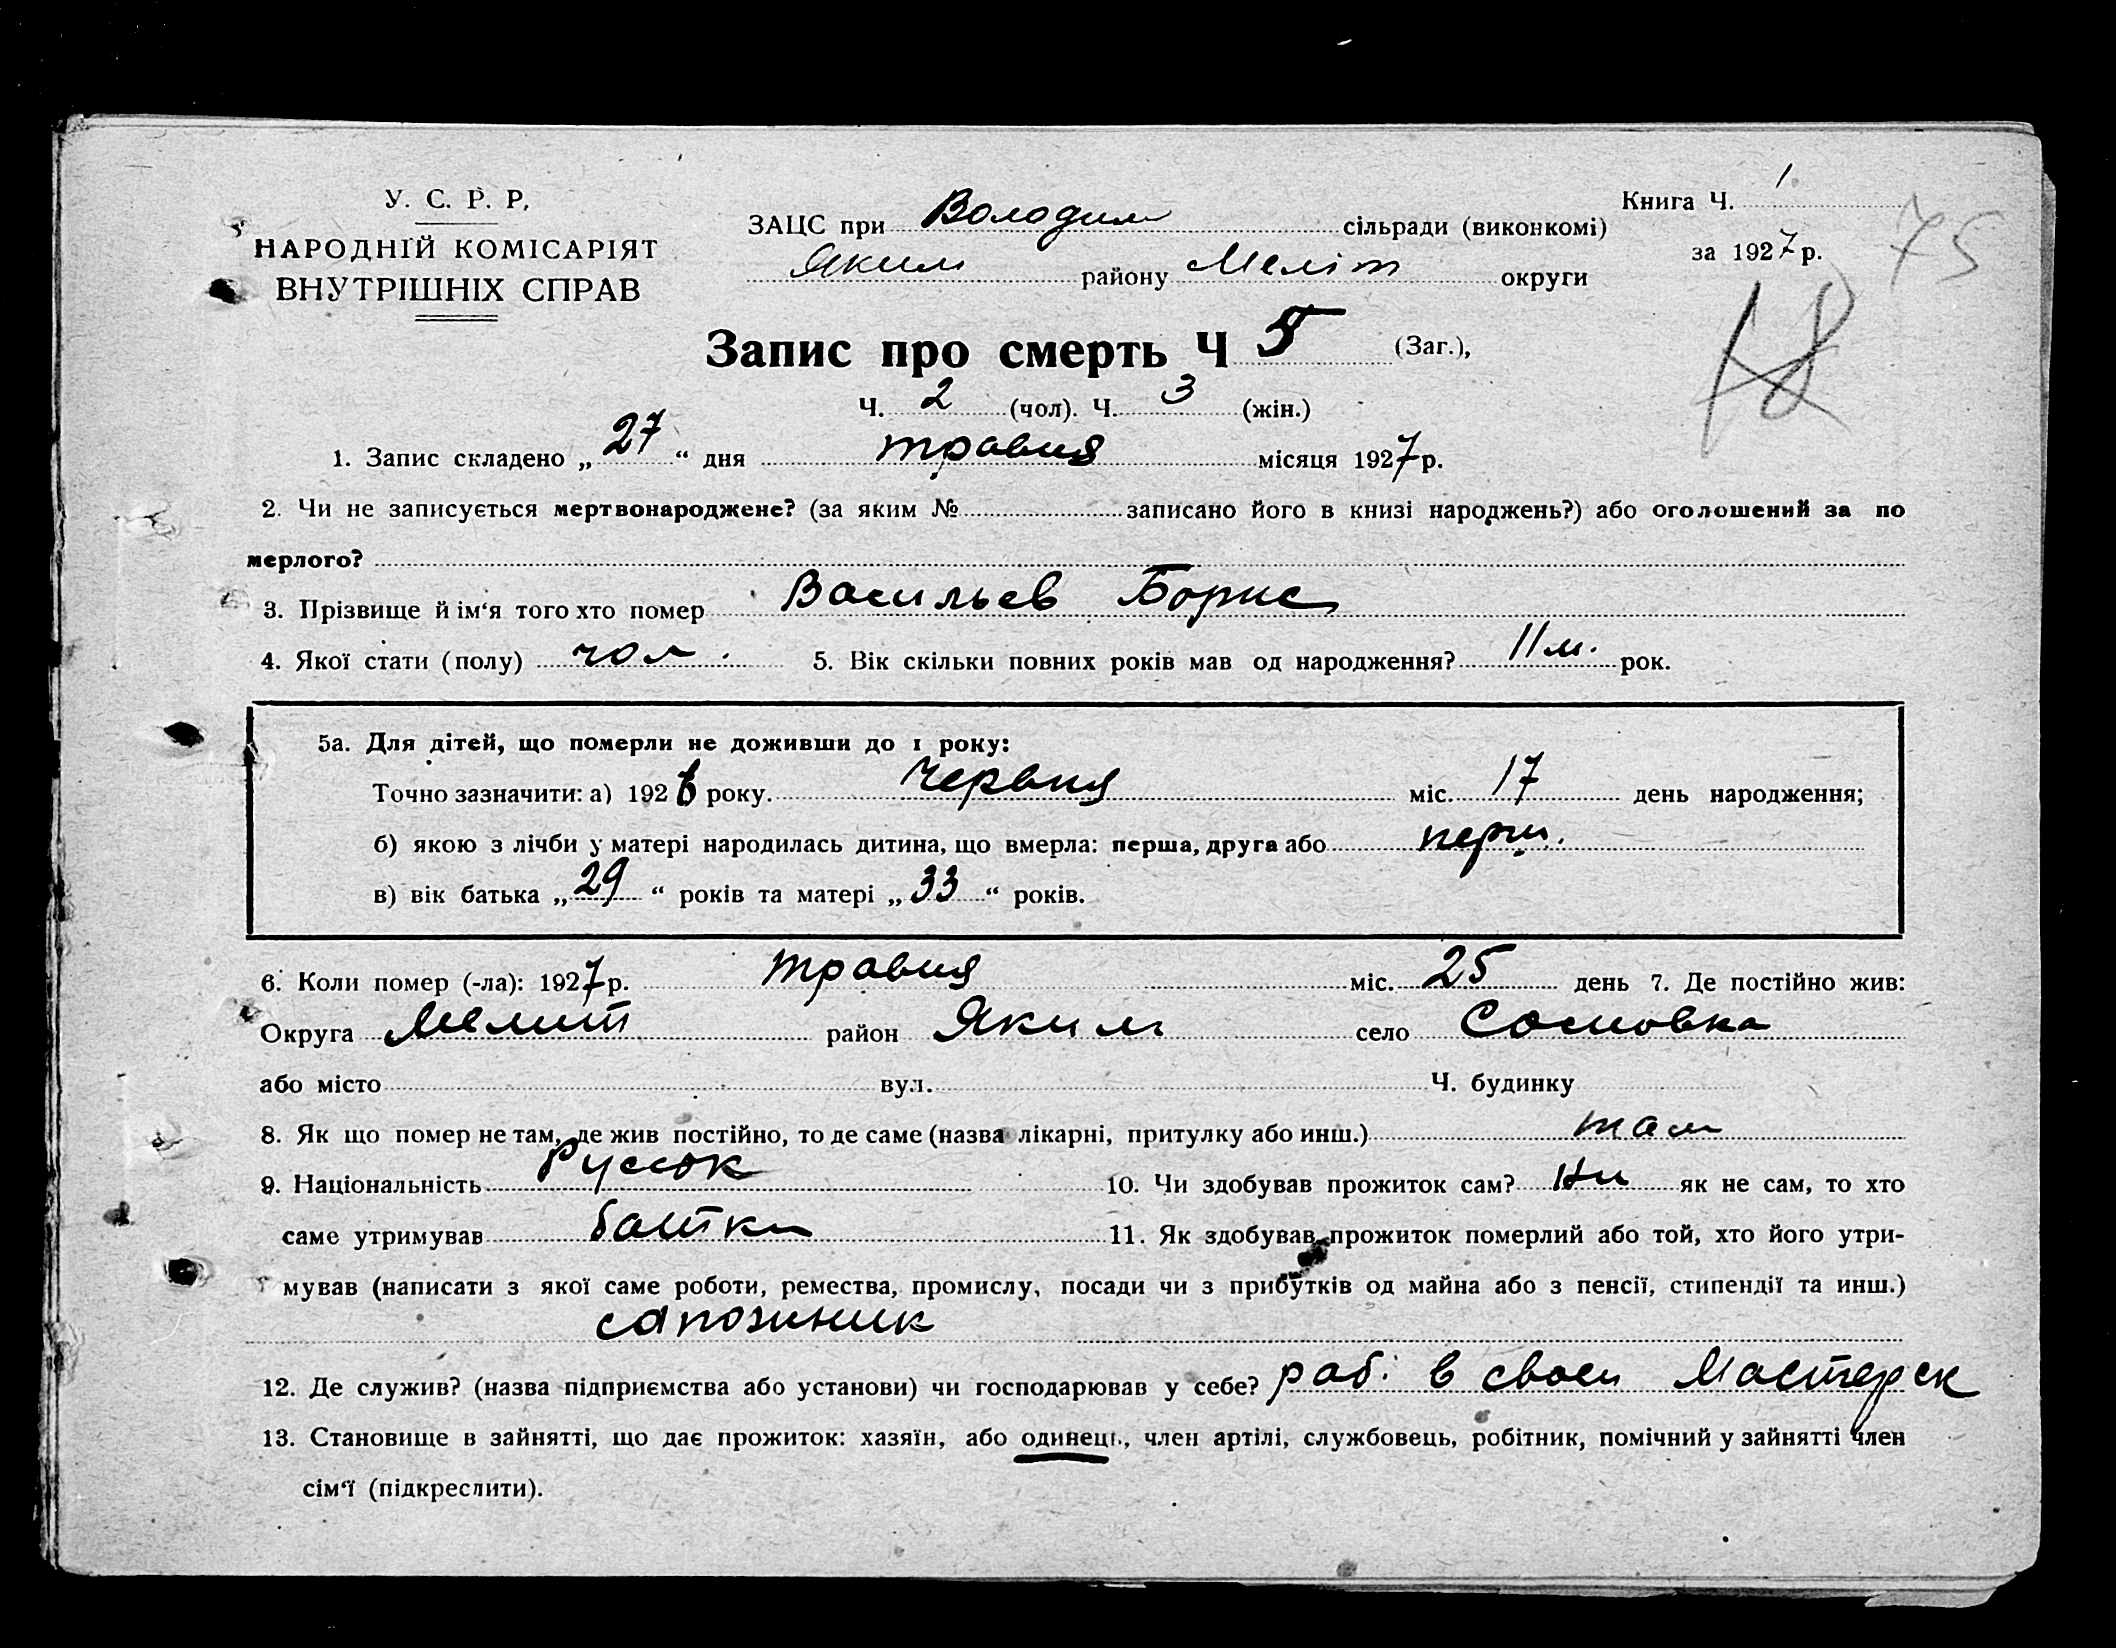 У. С. Р. Р,
НАРОДНІЙ КОМІСАРІЯТ
ВНУТРІШНІХ СПРАВ
ЗАЦС при Володим сільради (виконкомі)
Яким району Меліт округи
Книга Ч. 1
за 1927 р.
75
18
Запис про смерть Ч 5 (Заг.),
Ч. 2 (чол). Ч. 3 (жін.)
1. Запис складено „27“ дня травня місяця 1927 р.
2. Чи не записується мертвонароджене? (за яким № записано його в книзі народжень?) або оголошений за по
мерлого?
3. Прізвище й ім‘я того хто помер Васильев Борис
4. Якої стати (полу) чол. 5. Вік скільки повних років мав од народження? 11 м. рок.
5а. Для дітей, що померли не доживши до 1 року:
Точно зазначити: а) 1926 року. Червня міс. 17 день народження;
б) якою з лічби у матері народилась дитина, що вмерла: перша, друга або перш.
в) вік батька „29“ років та матері „33“ років.
6. Коли помер (-ла): 1927 р. травня міс. 25 день 7. Де постійно жив:
Округа Мелит район Яким село Сосновка
або місто вул. Ч. будинку
8. Як що помер не там, де жив постійно, то де саме (назва лікарні, притулку або инш.) там
9. Національність Руссок 10. Чи здобував прожиток сам? Ни як не сам, то хто
саме утримував батки 11. Як здобував прожиток померлий або той, хто його утри-
мував (написати з якої саме роботи, ремества, промислу, посади чи з прибутків од майна або з пенсії, стипендії та инш.)
сапожник
12. Де служив? (назва підприємства або установи) чи господарював у себе? раб. в своей Мастерск
13. Становище в зайнятті, що дає прожиток: хазяїн, або одинець, член артілі, службовець, робітник, помічний у зайнятті член
сім‘ї (підкреслити).